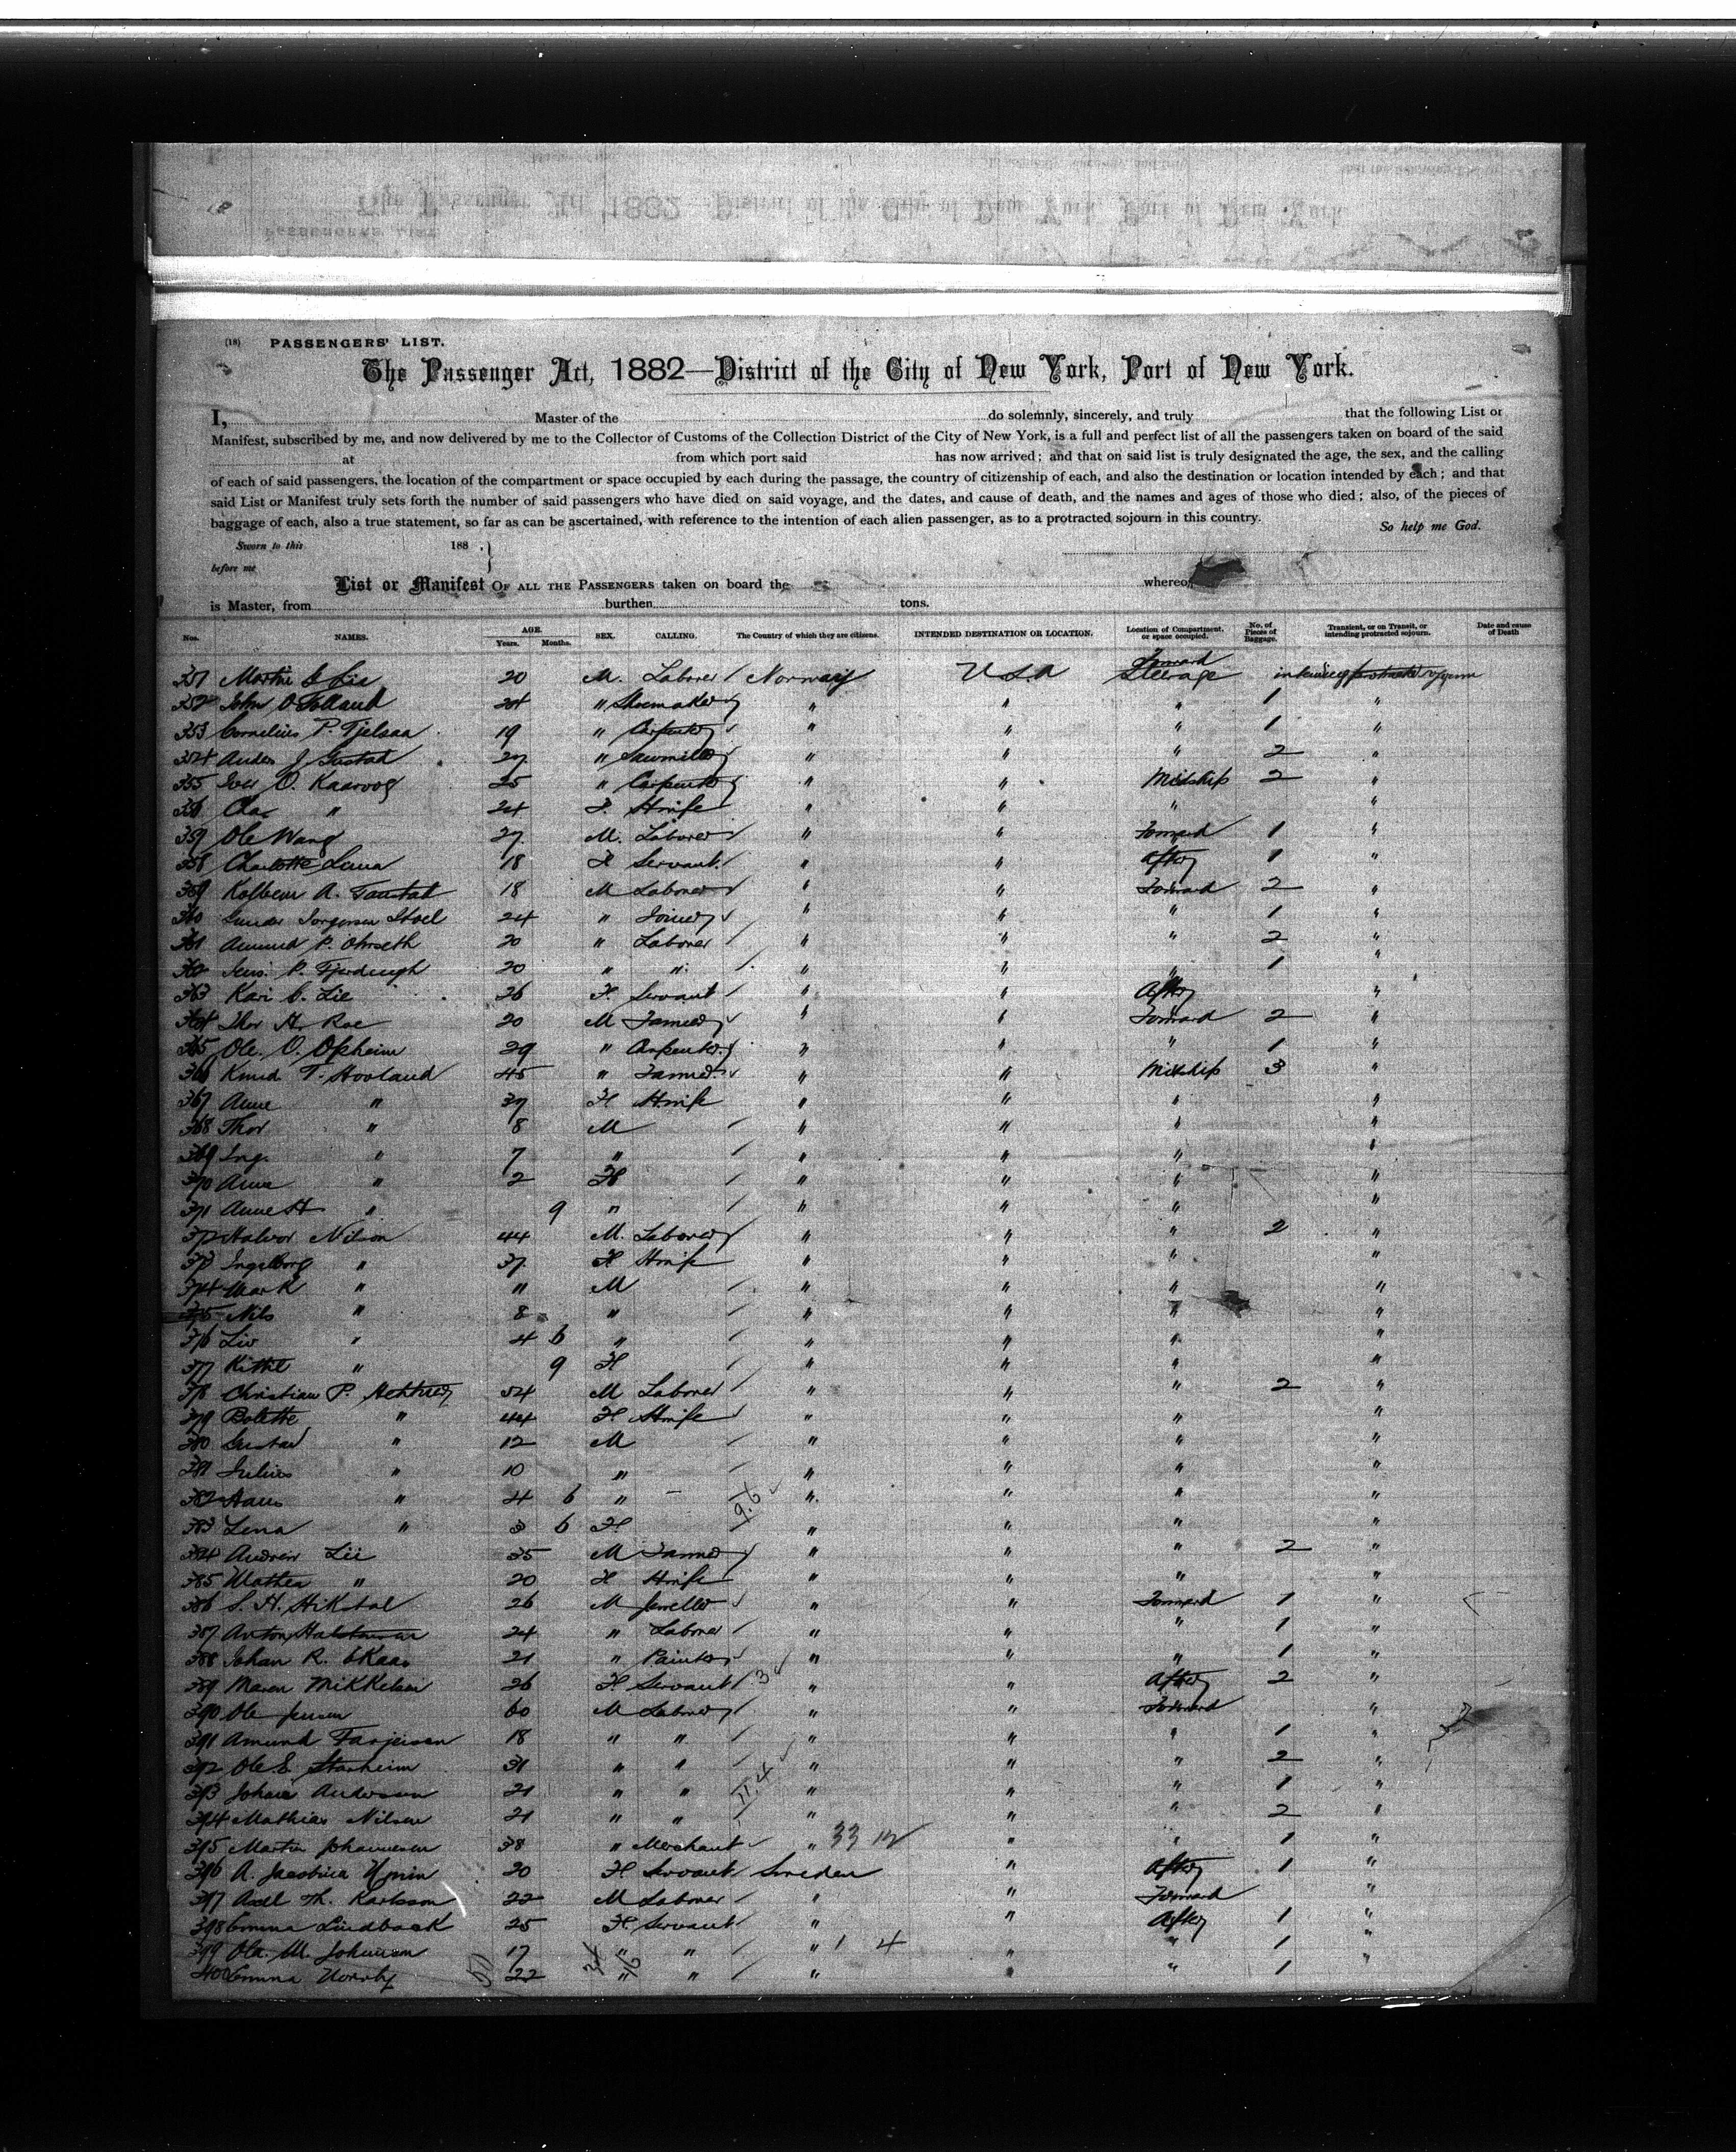 (18) PASSENGERS' LIST.
The Passenger Act, 1882—District of the City of New York, Port of New York.
I, Master of the do solemnly, sincerely, and truly that the following List or
Manifest, subscribed by me, and now delivered by me to the Collector of Customs of the Collection District of the City of New York, is a full and perfect list of all the passengers taken on board of the said
at from which port said has now arrived; and that on said list is truly designated the age, the sex, and the calling
of each of said passengers, the location of the compartment or space occupied by each during the passage, the country of citizenship of each, and also the destination or location intended by each; and that
said List or Manifest truly sets forth the number of said passengers who have died on said voyage, and the dates, and cause of death, and the names and ages of those who died; also, of the pieces of
baggage of each, also a true statement, so far as can be ascertained, with reference to the intention of each alien passenger, as to a protracted sojourn in this country.
So help me God.
Sworn to this 188 .
before me
List or Manifest OF ALL THE PASSENGERS taken on board the whereof
is Master, from burthen tons.
Nos. NAMES. AGE. Years. Months. SEX. CALLING. The Country of which they are citizens. INTENDED DESTINATION OR LOCATION. Location of Compartment, or space occupied. No. of Pieces of Baggage. Transient, or on Transit, or intending protracted sojourn. Date and cause of Death
351 20 M. Laborer Norway U.S.A Forward Steerage intending protracted sojourn
352 John O 24 " Shoemaker " " " 1 "
353 Cornelius P. Tjelsaa 19 " Carpenter " " " 1 "
354 J 27 " " " " 2 "
355 O. 25 " Carpenter " " Midship 2 "
356 " 24 F. Hwife " " " "
357 Ole Wang 27 M. Laborer " " Forward 1 "
358 Charlotte 18 F Servant " " After 1 "
359 A. 18 M Laborer " " Forward 2 "
360 24 " Joiner " " " 1 "
361 P. 20 " Laborer " " " 2 "
362 P. 20 " " " " " 1 "
363 Kari Lie 26 F. Servant " " After "
364 Thor H. Roe 20 M Farmer " " Forward 2 "
365 Ole. O. Opheim 29 " Carpenter " " " 1 "
366 Knud T. Hovland 45 " Farmer " " Midship 3 "
367 Anne " 37 F Hwife " " " "
368 Thor " 8 M " " " "
369 " 7 " " " " "
370 Anne " 2 F " " " "
371 Anne H " 9 " " " " "
372 Halvor Nilson 44 M. Laborer " " " 2 "
373 Ingelborg " 37 F Hwife " " " "
374 " 11 M " " " "
375 Nils " 8 " " " " "
376 Liv " 4 6 " " " " "
377 Kittil " 9 F " " " "
378 Christian P. 54 M Laborer " " " 2 "
379 Bolette " 44 F Hwife " " " "
380 Gustav " 12 M " " " "
381 Julius " 10 " " " " "
382 Hans " 4 6 " " " " "
383 Lena " 3 6 F 9.6 " " " "
384 Andrew Lii 35 M Farmer " " " 2 "
385 Mathea " 20 F Hwife " " " "
386 S. H. 26 M Jeweller " " Forward 1 "
387 Anton 24 " Laborer " " " 1 "
388 Johan R. 21 " Painter " " " 1 "
389 Maren Mikkelsen 26 F. Servant 3 " " After 2 "
390 Ole Jensen 60 M Laborer " " Forward "
391 Amund 18 " " " " " 1 "
392 Ole E. Starheim 31 " " " " " 2 "
393 Anderson 21 " " 11.4 " " " 1 "
394 Mathias Nilsen 21 " " " " " 2 "
395 Martin Johannesen 38 " Merchant " 33 12 " " 1 "
396 A. 20 F Servant Sweden " After 1 "
397 Axel Th. Karlsson 22 M Laborer " " Forward "
398 Emma Lindback 25 F. Servant " " After 1 "
399 M. 17 " " " 1 4 " " 1 "
400 Emma 22 " " " " " 1 "